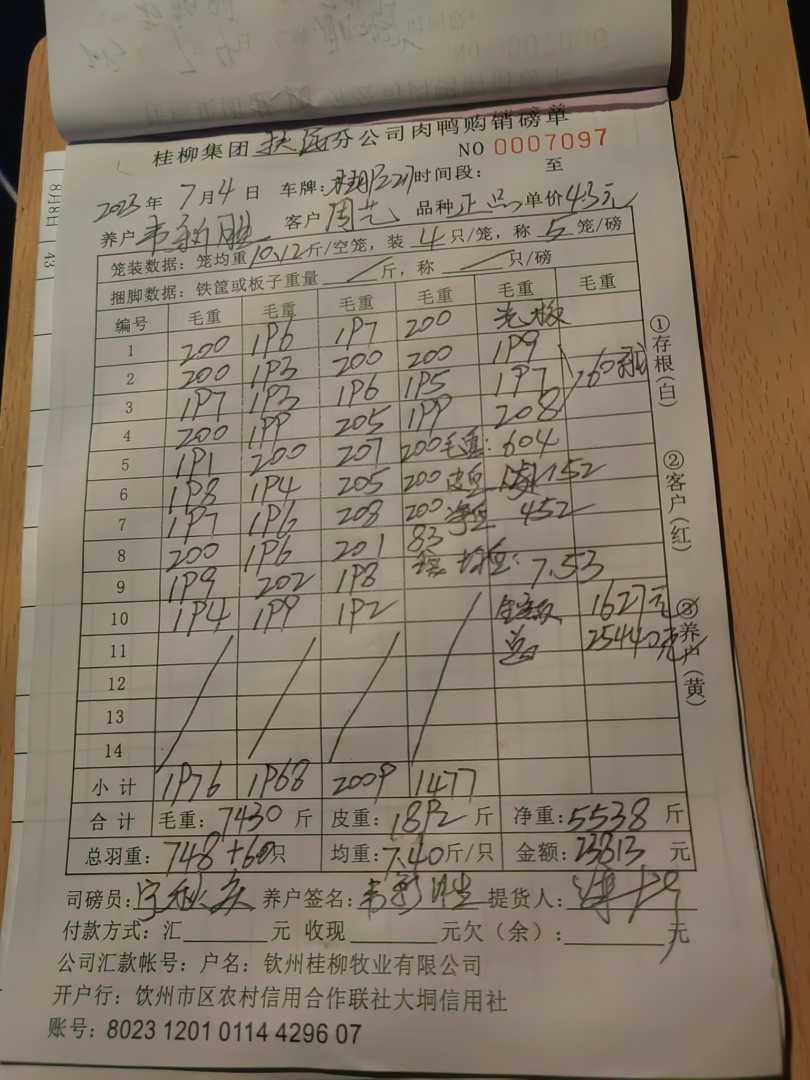 桂柳集团扶绥分公司肉鸭购销磅单
NO 0007097
2023年7月4日 车牌: 时间段: 至
养户 韦新胜 客户 周艺 品种 正品 单价 4.3元
笼装数据: 笼均重 10.12 斤/空笼, 装 4 只/笼, 称 5 笼/磅
捆脚数据: 铁筐或板子重量 / 斤, 称 / 只/磅
编号 毛重 毛重 毛重 毛重 毛重 毛重
1 200 196 197 200 光板
2 200 193 200 200 199
3 197 193 196 195 197 60只
4 200 199 205 199 208
5 191 200 207 200 毛重: 604
6 198 194 205 200 皮重 152
7 197 196 208 200 净重 452
8 200 196 201 83 均重: 7.53
9 199 202 198
10 194 199 192 金额 1627元
11 总 25440元
12
13
14
小计 1976 1968 2009 1477
合计 毛重: 7430 斤 皮重: 1892 斤 净重: 5538 斤
总羽重: 748+60只 均重: 7.40 斤/只 金额: 23813 元
司磅员: 养户签名: 韦新胜 提货人:
付款方式: 汇 元 收现 元欠(余): 元
公司汇款帐号: 户名: 钦州桂柳牧业有限公司
开户行: 钦州市区农村信用合作联社大垌信用社
账号: 8023 1201 0114 4296 07
①存根(白)
②客户(红)
③养户(黄)
8月8日 43